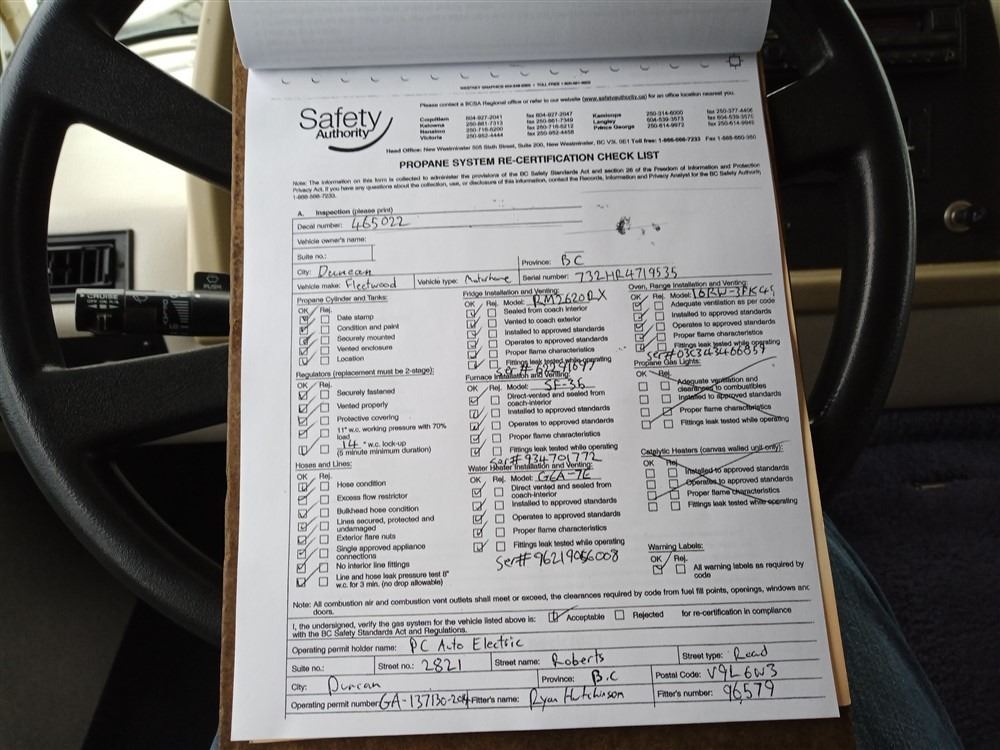 WHITNEY GRAPHICS
Please contact a BCSA Regional office or refer to our website (www.safetyauthority.ca) for an office location nearest you.
Safety
Authority
Coquitlam 604-927-2041 fax 604-927-2047 Kamloops 250-314-6000 fax 250-377-4406
Kelowna 250-861-7313 fax 250-861-7349 Langley 604-539-3573
Nanaimo 250-716-5200 fax 250-716-5212 Prince George 250-614-9972
Victoria 250-952-4444 fax 250-952-4458
Head Office: New Westminster 505 Sixth Street, Suite 200, New Westminster, BC V3L 0E1 Toll free: 1-866-566-7233
PROPANE SYSTEM RE-CERTIFICATION CHECK LIST
Note: The information on this form is collected to administer the provisions of the BC Safety Standards Act and section 26 of the Freedom of Information and Protection
Privacy Act. If you have any questions about the collection, use, or disclosure of this information, contact the Records, Information and Privacy Analyst for the BC Safety Authority
1-866-566-7233.
A. Inspection (please print)
Decal number: 465022
Vehicle owner's name:
Suite no.:
City: Duncan Province: BC
Vehicle make: Fleetwood Vehicle type: Motorhome Serial number: 732HR4719535
Propane Cylinder and Tanks:
OK Rej.
Date stamp
Condition and paint
Securely mounted
Vented enclosure
Location
Regulators (replacement must be 2-stage):
OK Rej.
Securely fastened
Vented properly
Protective covering
11" w.c. working pressure with 70%
load
14 " w.c. lock-up
(5 minute minimum duration)
Hoses and Lines:
OK Rej.
Hose condition
Excess flow restrictor
Bulkhead hose condition
Lines secured, protected and
undamaged
Exterior flare nuts
Single approved appliance
connections
No interior line fittings
Line and hose leak pressure test 8"
w.c. for 3 min. (no drop allowable)
Fridge Installation and Venting:
OK Rej. Model: RM2620RX
Sealed from coach interior
Vented to coach exterior
Installed to approved standards
Operates to approved standards
Proper flame characteristics
Fittings leak tested while operating
Ser#
Furnace Installation and Venting:
OK Rej. Model: SF-36
Direct-vented and sealed from
coach-interior
Installed to approved standards
Operates to approved standards
Proper flame characteristics
Fittings leak tested while operating
Ser# 934701772
Water Heater Installation and Venting:
OK Rej. Model: G6A-7E
Direct vented and sealed from
coach-interior
Installed to approved standards
Operates to approved standards
Proper flame characteristics
Fittings leak tested while operating
Ser# 96219056008
Oven, Range Installation and Venting:
OK Rej. Model:
Adequate ventilation as per code
Installed to approved standards
Operates to approved standards
Proper flame characteristics
Fittings leak tested while operating
Ser#
Propane Gas Lights:
OK Rej.
Adequate ventilation and
clearances to combustibles
Installed to approved standards
Proper flame characteristics
Fittings leak tested while operating
Catalytic Heaters (canvas walled unit only):
OK Rej.
Installed to approved standards
Operates to approved standards
Proper flame characteristics
Fittings leak tested while operating
Warning Labels:
OK Rej.
All warning labels as required by
code
Note: All combustion air and combustion vent outlets shall meet or exceed, the clearances required by code from fuel fill points, openings, windows and
doors.
I, the undersigned, verify the gas system for the vehicle listed above is: Acceptable Rejected for re-certification in compliance
with the BC Safety Standards Act and Regulations.
Operating permit holder name: PC Auto Electric
Suite no.: Street no.: 2821 Street name: Roberts Street type: Road
City: Duncan Province: B.C Postal Code: V9L 6W3
Operating permit number: Fitter's name: Ryan Hutchinson Fitter's number: 96579
CRUISE
PUSH